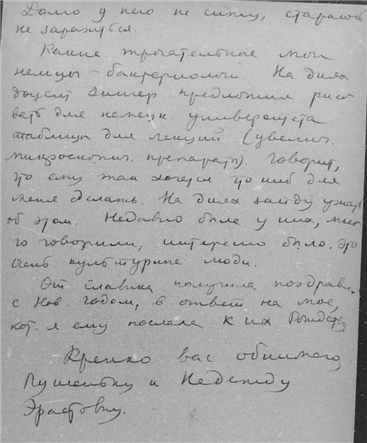 Долго у него не сижу, стараюсь
не заразиться.
Какие трогательные мои
немцы – бактериологи. На днях
доцент предложил рисо
вать для немецк. университета
таблицы для лекций (увелич.
микроскопич. препараты). Говорит,
что ему так хочется что ниб. для
меня сделать. На днях зайду узнать
об этом. Недавно была у них, мно
го говорили, интересно было. Это
очень культурные люди.
От Славика получила поздравл.
с Нов. годом, в ответ на мое,
кот. я ему послала к их Рождеству.
Крепко вас обнимаю
Лушеньку и Надежду
Эрастовну.